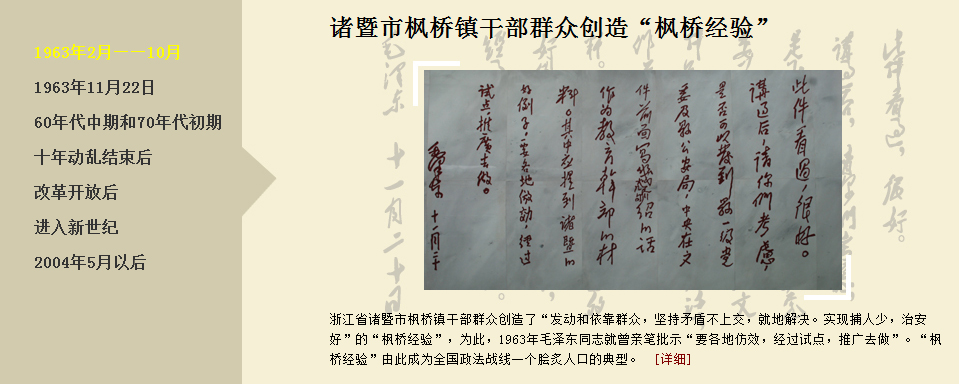 1963年2月——10月
1963年11月22日
60年代中期和70年代初期
十年动乱结束后
改革开放后
进入新世纪
2004年5月以后
诸暨市枫桥镇干部群众创造“枫桥经验”
此件看過，很好。
講过后，请你們考慮，
是否可以發到縣一级党
委及縣公安局，中央在文
件前面寫幾句介绍的話
作为教育幹部的材
料。其中应提到諸暨的
好例子，要各地仿效，經过
试点推廣去做。
毛澤东 十一月二十
浙江省诸暨市枫桥镇干部群众创造了“发动和依靠群众，坚持矛盾不上交，就地解决。实现捕人少，治安
好”的“枫桥经验”，为此，1963年毛泽东同志就曾亲笔批示“要各地仿效，经过试点，推广去做”。“枫
桥经验”由此成为全国政法战线一个脍炙人口的典型。 [详细]